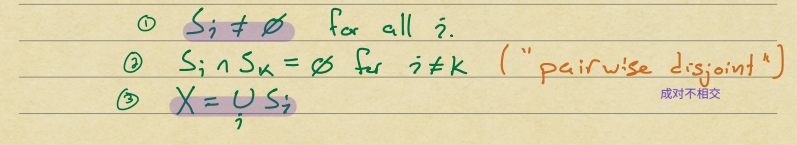 ① Sᵢ ≠ ∅ for all i.
② Sᵢ ∩ Sₖ = ∅ for i ≠ k ("pairwise disjoint")
成对不相交
③ X = ∪ᵢ Sᵢ